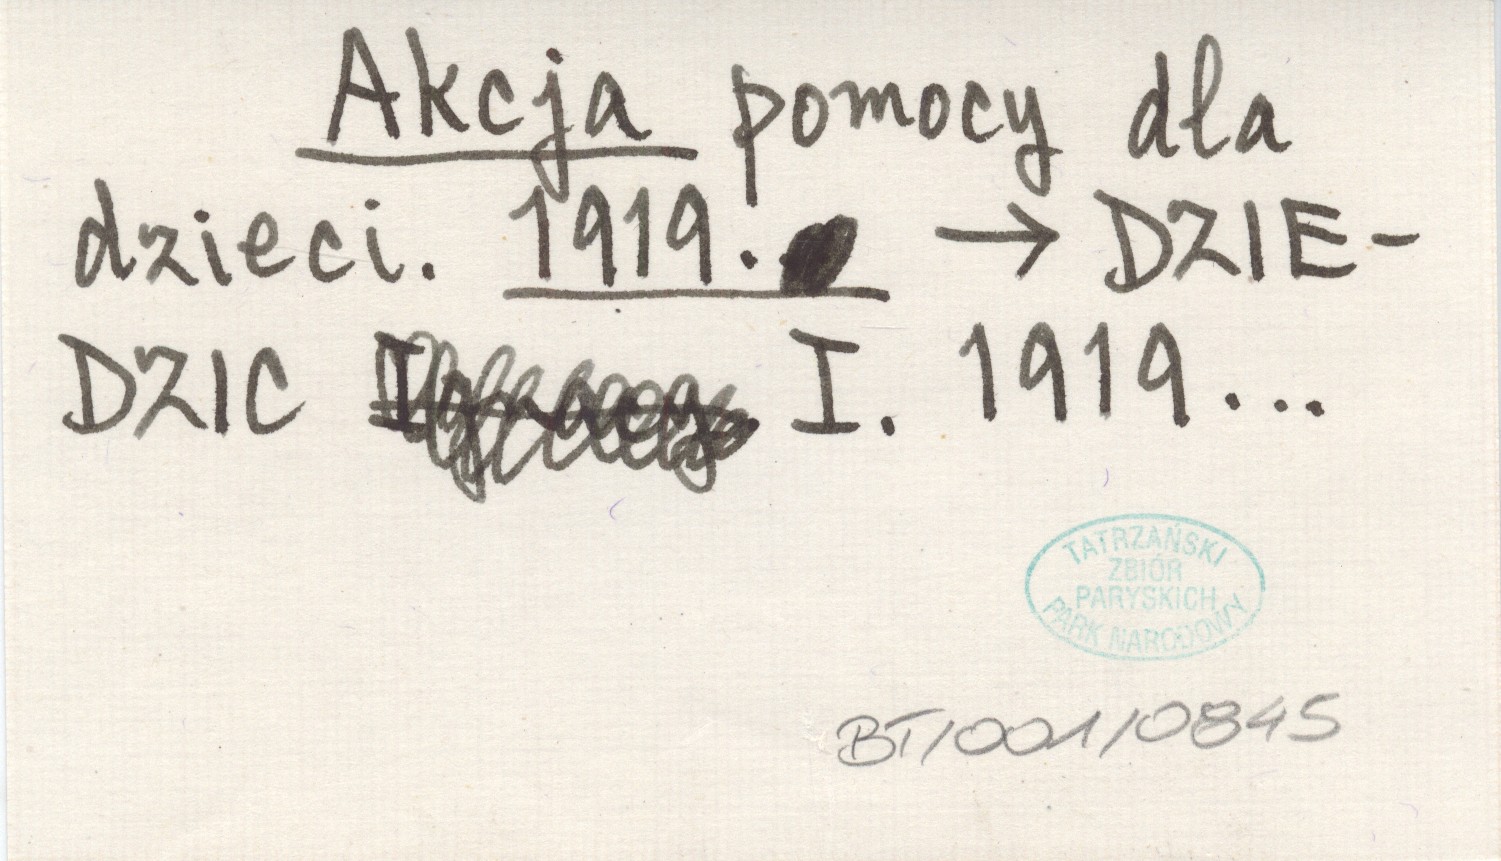 Akcja pomocy dla
dzieci. 1919. → DZIE-
DZIC I. 1919...
TATRZAŃSKI
ZBIÓR
PARYSKICH
PARK NARODOWY
BT/001/0845